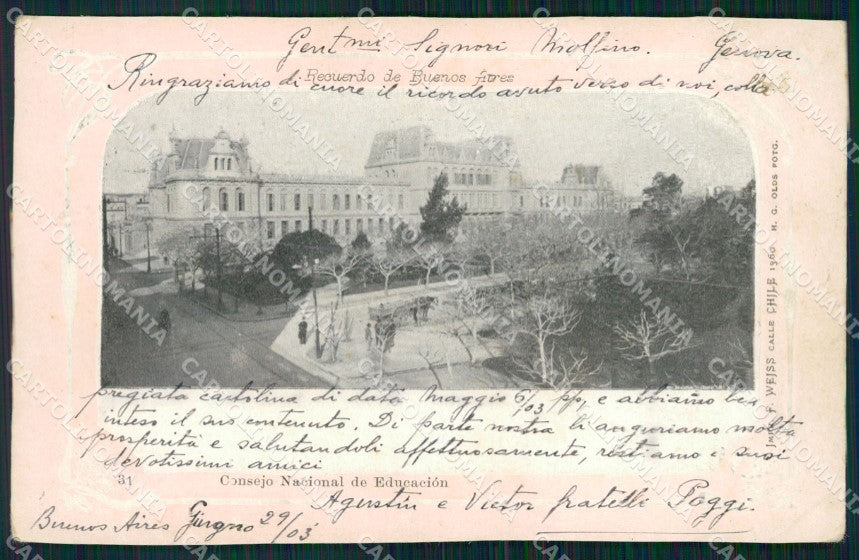 Gent.mi Signori Molfino. Genova.
Recuerdo de Buenos Aires
Ringraziamo di cuore il ricordo avuto verso di noi, colla
pregiata cartolina di data Maggio 6/03 pp, e abbiamo ben
inteso il suo contenuto. Di parte nostra li auguriamo molta
prosperità e salutandoli affettuosamente, restiamo i suoi
devotissimi amici
31 Consejo Nacional de Educación
Agustin e Victor fratelli Poggi.
Buenos Aires Giugno 29/03
WEISS CALLE CHILE 1360 H. G. OLDS FOTG.
CARTOLINOMANIA